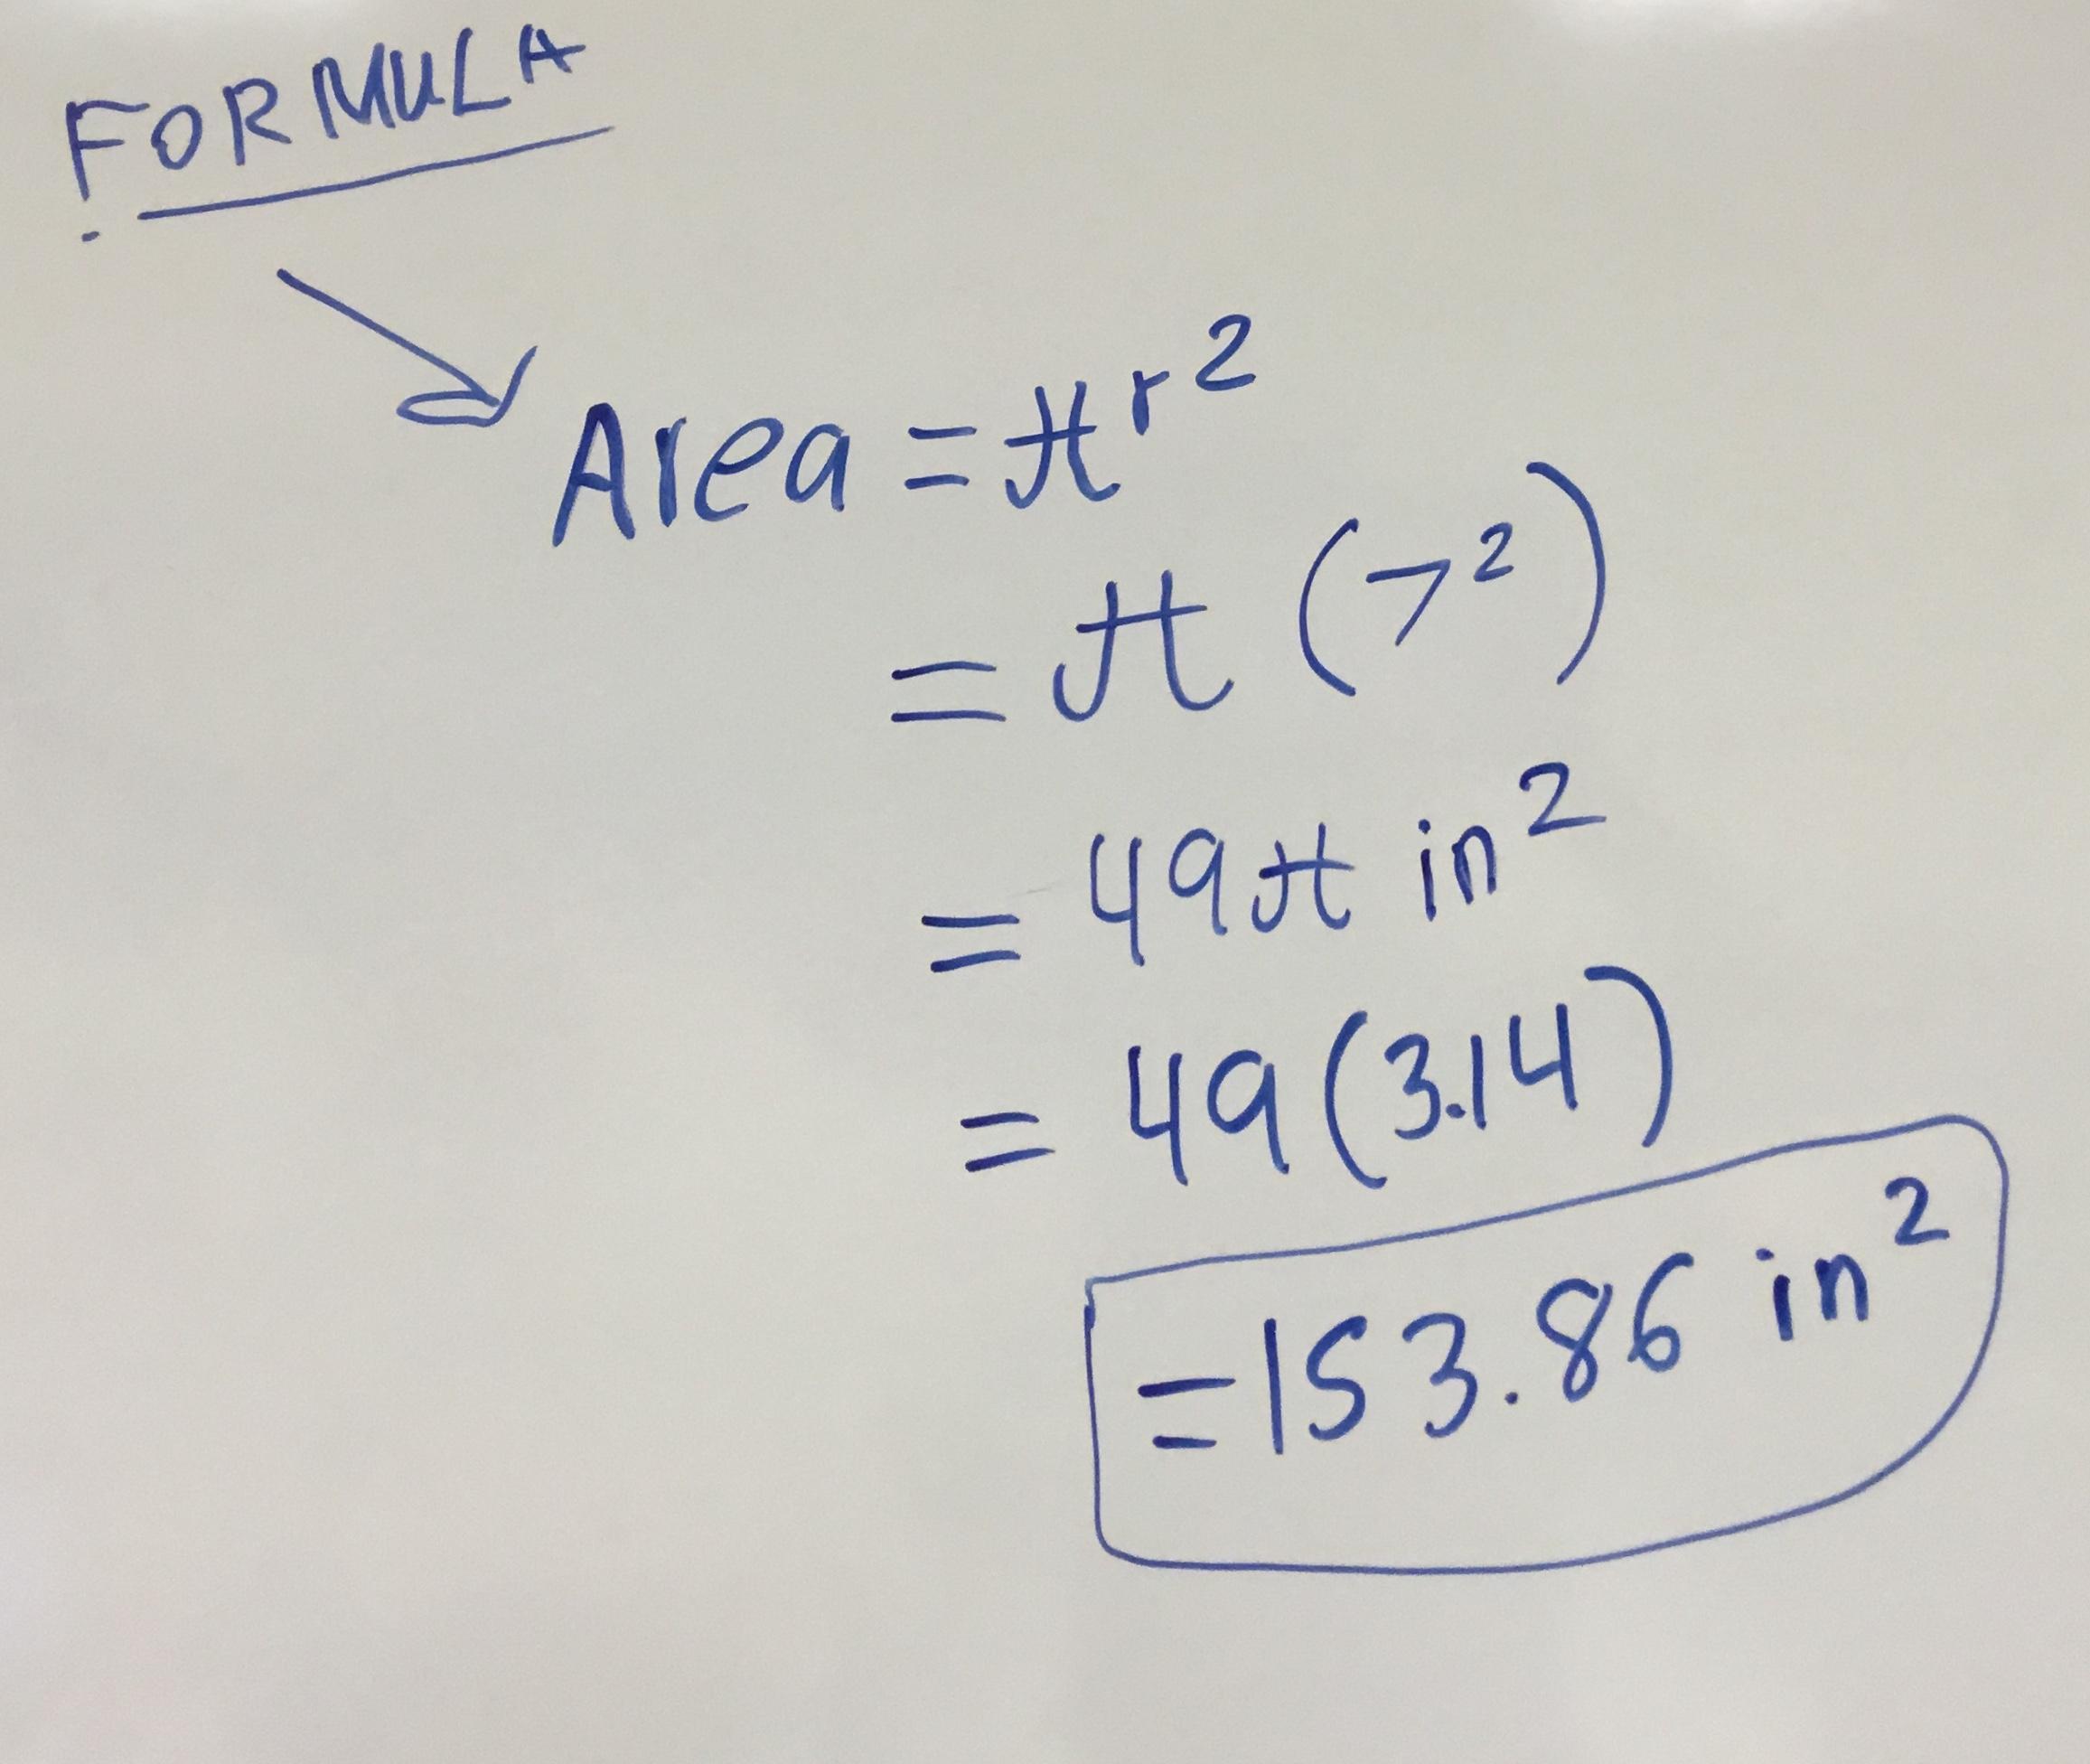 FORMULA
Area = πr²
= π (7²)
= 49π in²
= 49(3.14)
=153.86 in²